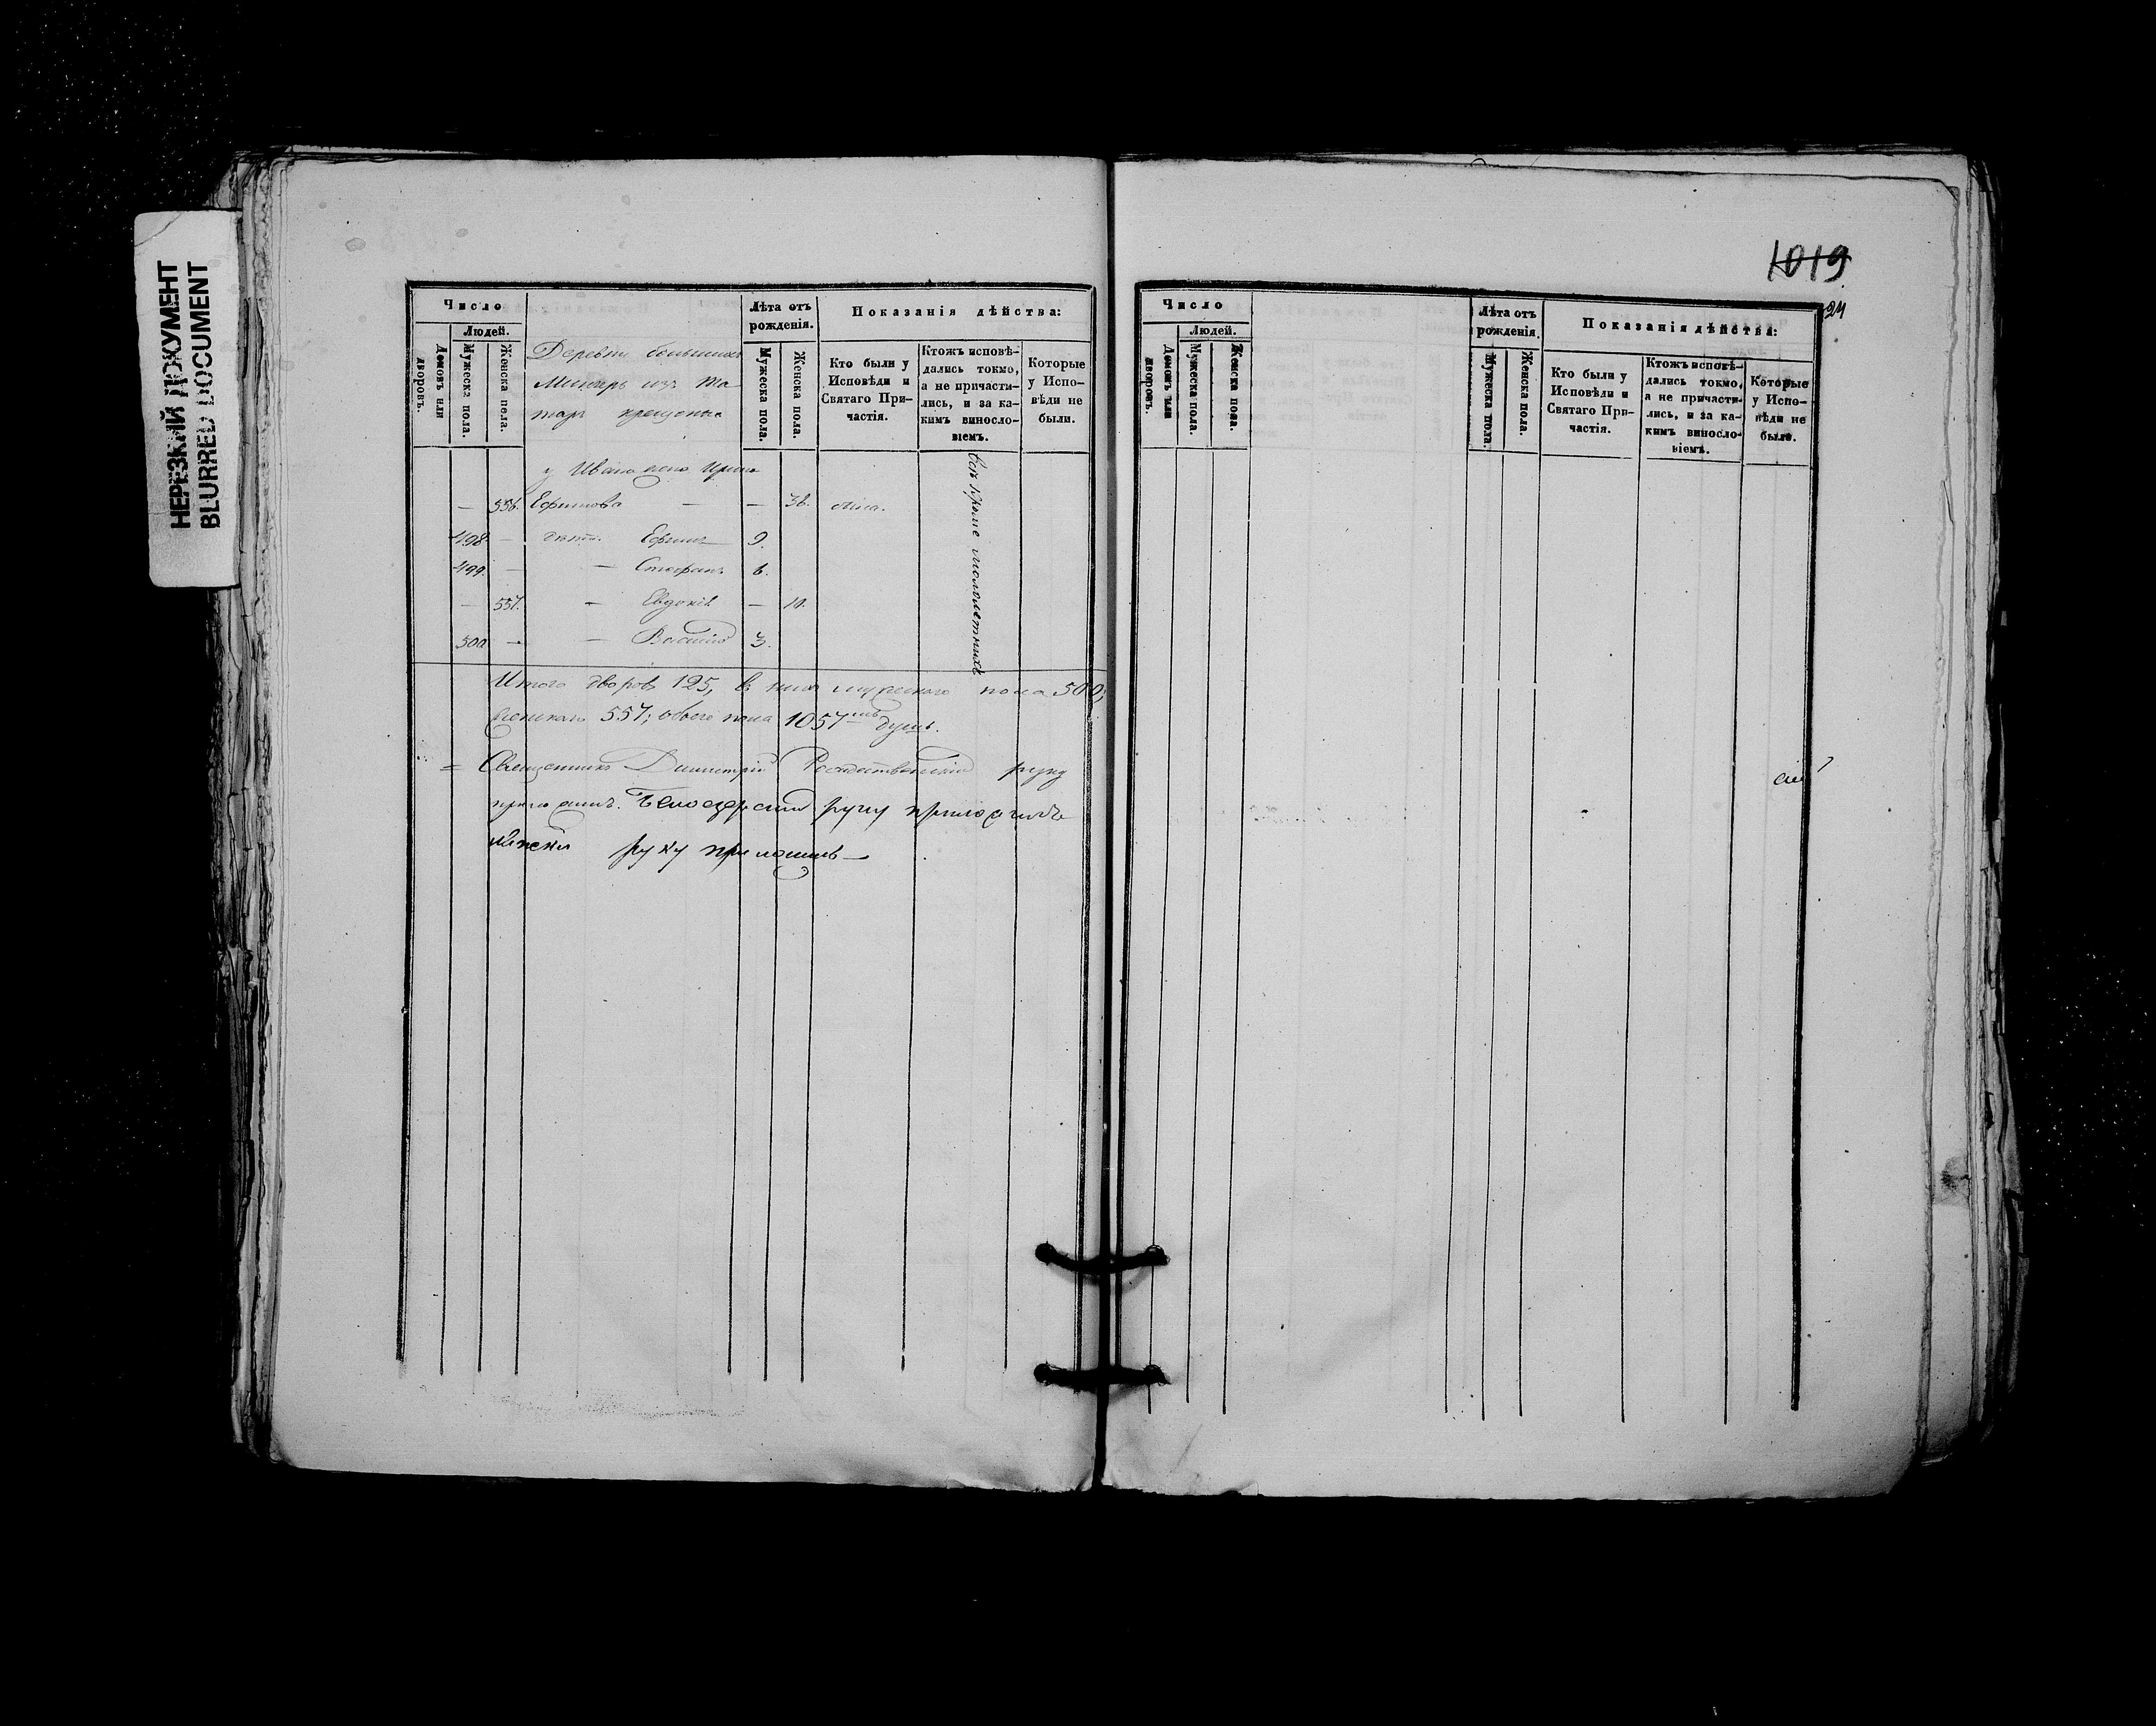 НЕРЕЗКИЙ ДОКУМЕНТ
BLURRED DOCUMENT
Число
Людей.
Домовъ или дворовъ.
Мужеска пола.
Женска пола.
Деревни большихъ
из та-
таръ крещеных
Лѣта отъ рожденія.
Мужеска пола.
Женска пола.
Показанія дѣйства:
Кто были у Исповѣди и Святаго Причастія.
Ктожъ исповѣ-
дались токмо,
а не причасти-
лись, и за ка-
кимъ виносло-
віемъ.
Которые
у Испо-
вѣди не
были.
у Ивана жена Ирина
— 556. Ефимова — — 36.
498 — дѣти: Ефимъ 9.
499. — — Стефанъ 6.
— 557. — Евдокія — 10.
500 — — Василій 3.
всѣ кроме малолетныхъ
Итого дворовъ 125, в нихъ мужескаго пола 500;
женскаго 557; обоего пола 1057 душъ.
Священникъ Димитрій Рождественскій руку
приложилъ. Белозерскій руку приложилъ
руку приложилъ —
1019
24
Число
Людей.
Домовъ или дворовъ.
Мужеска пола.
Женска пола.
Лѣта отъ
рожденія.
Мужеска пола.
Женска пола.
Показанія дѣйства:
Кто были у
Исповѣди и
Святаго При-
частія.
Ктожъ исповѣ-
дались токмо,
а не причасти-
лись, и за ка-
кимъ виносло-
віемъ.
Которые
у Испо-
вѣди не
были.